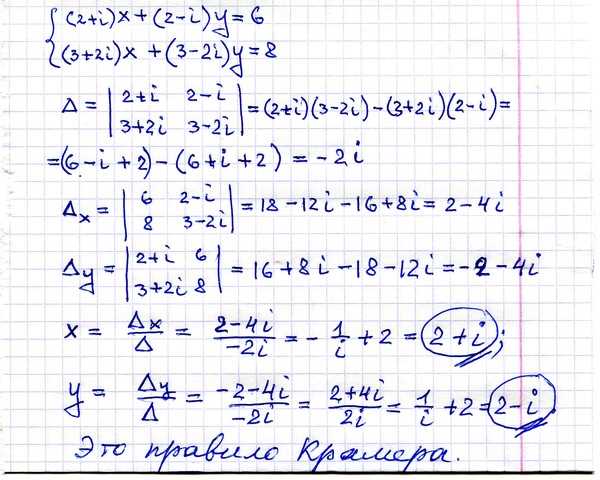 (2+i)x+(2-i)y=6
(3+2i)x+(3-2i)y=8
Δ = |2+i 2-i| = (2+i)(3-2i)-(3+2i)(2-i)=
|3+2i 3-2i|
=(6-i+2)-(6+i+2) = -2i
Δx = |6 2-i| = 18-12i-16+8i = 2-4i
|8 3-2i|
Δy = |2+i 6| = 16+8i-18-12i = -2-4i
|3+2i 8|
x = Δx/Δ = (2-4i)/(-2i) = -1/i+2 = 2+i;
y = Δy/Δ = (-2-4i)/(-2i) = (2+4i)/(2i) = 1/i+2 = 2-i.
Это правило Крамера.